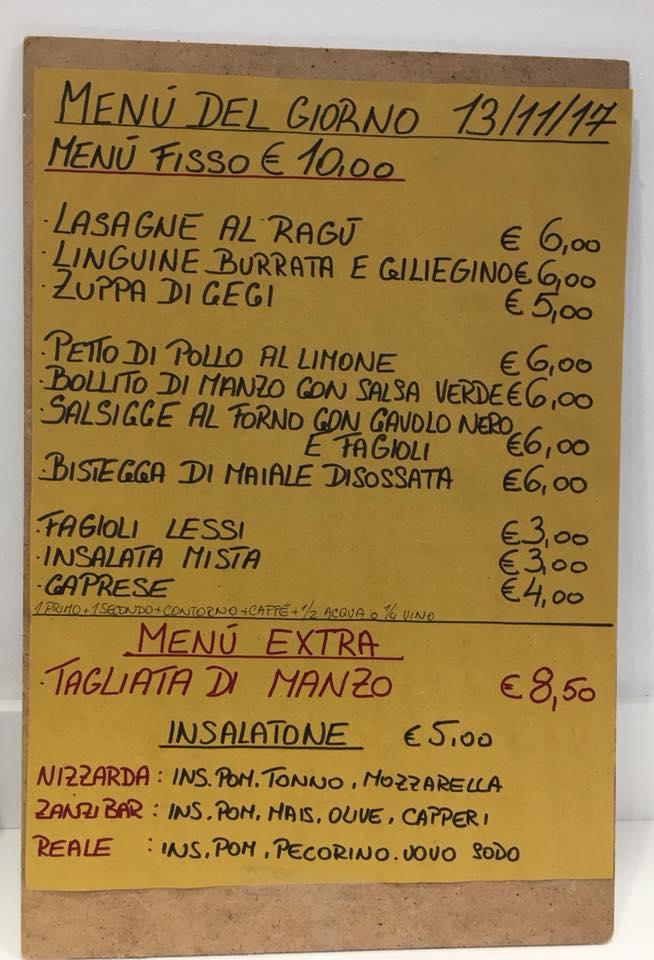 MENÚ DEL GIORNO 13/11/17
MENÚ FISSO € 10,00
·LASAGNE AL RAGÚ € 6,00
·LINGUINE BURRATA E CILIEGINO € 6,00
·ZUPPA DI CECI € 5,00
·PETTO DI POLLO AL LIMONE € 6,00
·BOLLITO DI MANZO CON SALSA VERDE € 6,00
·SALSICCE AL FORNO CON CAVOLO NERO
E FAGIOLI € 6,00
·BISTECCA DI MAIALE DISOSSATA € 6,00
·FAGIOLI LESSI € 3,00
·INSALATA MISTA € 3,00
·CAPRESE € 4,00
1 PRIMO + 1 SECONDO + CONTORNO + CAFFÈ + 1/2 ACQUA O 1/4 VINO
MENÚ EXTRA
·TAGLIATA DI MANZO € 8,50
INSALATONE € 5,00
NIZZARDA : INS. POM. TONNO, MOZZARELLA
ZANZIBAR : INS. POM, MAIS, OLIVE, CAPPERI
REALE : INS. POM, PECORINO. UOVO SODO